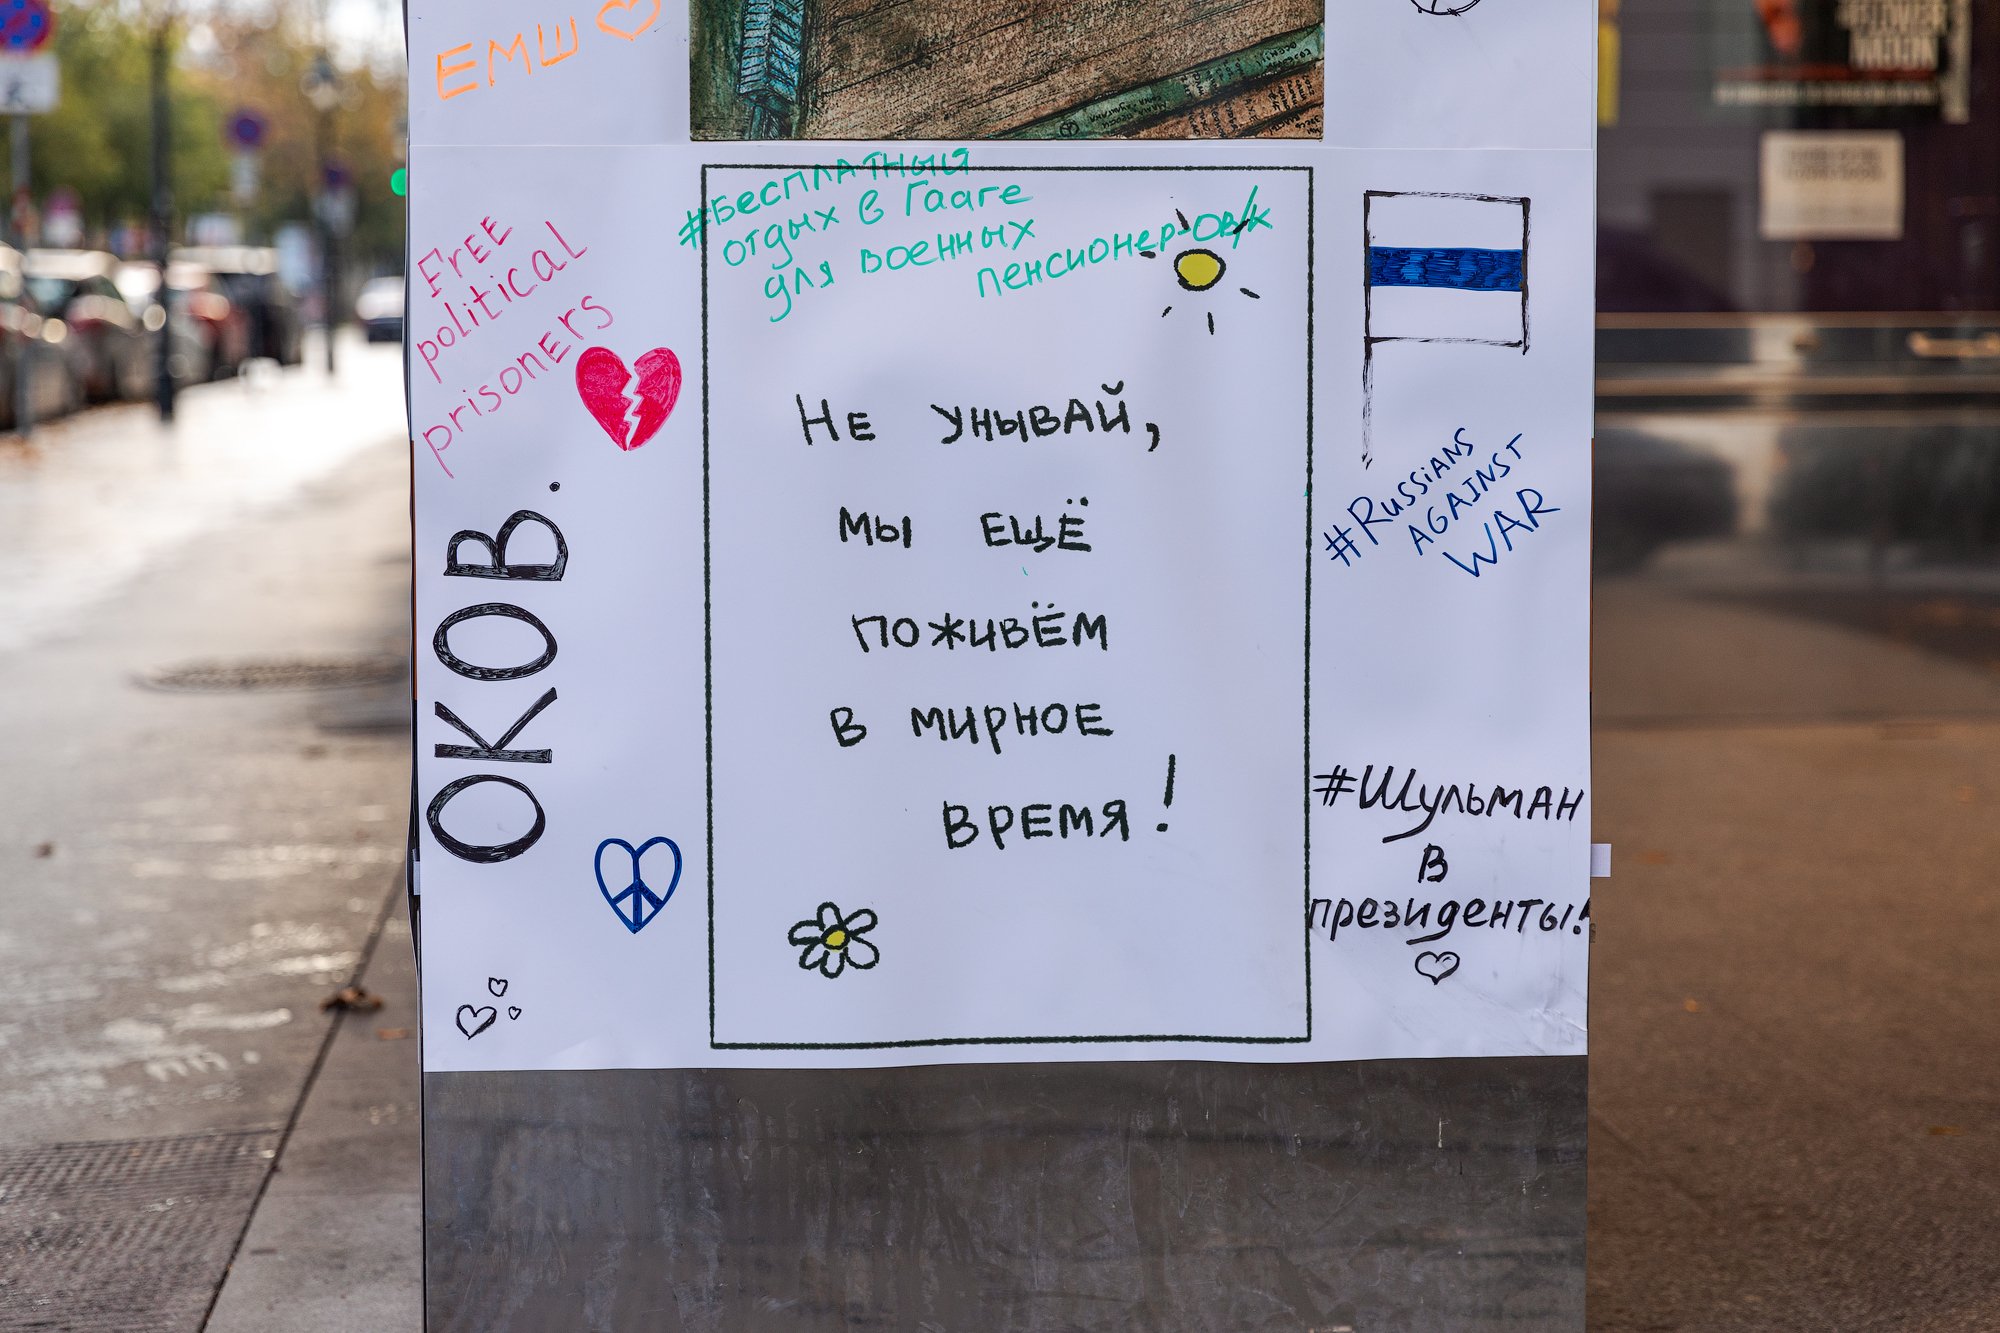 ЕМШ
#Бесплатный
отдых в Гааге
для военных
пенсионер-ов/к
Free
political
prisoners
ОКОВ.
Не унывай,
мы ещё
поживём
в мирное
время!
#Russians
against
war
#Шульман
в
президенты!